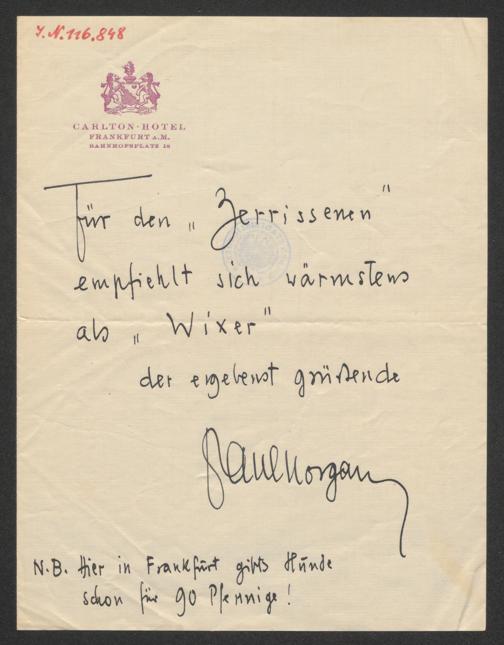 I.N.116.848
CARLTON-HOTEL
FRANKFURT A.M.
BAHNHOFSPLATZ 16
Für den „Zerrissenen"
empfiehlt sich wärmstens
als „Wixer"
der ergebenst grüßende
Paul Morgan
N.B. Hier in Frankfurt gibts Hunde
schon für 90 Pfennige!